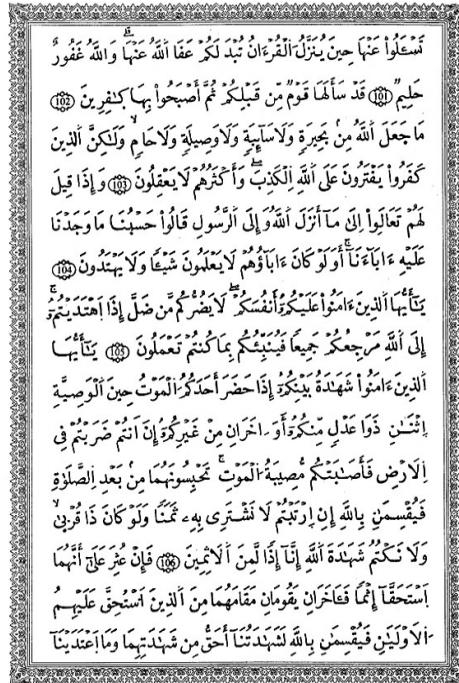 تَسْـَٔلُواْ عَنْهَا حِينَ يُنَزَّلُ اُ۬لْقُرْءَانُ تُبْدَ لَكُمْ عَفَا اَ۬للَّهُ عَنْهَا وَاللَّهُ غَفُورٌ
حَلِيمٌ 101 قَدْ سَأَلَهَا قَوْمٌ مِّن قَبْلِكُمْ ثُمَّ أَصْبَحُواْ بِهَا كَٰفِرِينَ 102
مَا جَعَلَ اَ۬للَّهُ مِنۢ بَحِيرَةٍ وَلَا سَآئِبَةٍ وَلَا وَصِيلَةٍ وَلَا حَامٍ وَلَٰكِنَّ اَ۬لذِينَ
كَفَرُواْ يَفْتَرُونَ عَلَى اَ۬للَّهِ اِ۬لْكَذِبَ وَأَكْثَرُهُمْ لَا يَعْقِلُونَ 103 وَإِذَا قِيلَ
لَهُمْ تَعَالَوِاْ اِلَىٰ مَآ أَنزَلَ اَ۬للَّهُ وَإِلَى اَ۬لرَّسُولِ قَالُواْ حَسْبُنَا مَا وَجَدْنَا
عَلَيْهِ ءَابَآءَنَآ أَوَلَوْ كَانَ ءَابَآؤُهُمْ لَا يَعْلَمُونَ شَيْـٔاً وَلَا يَهْتَدُونَ 104
يَٰٓأَيُّهَا اَ۬لذِينَ ءَامَنُواْ عَلَيْكُمُۥٓ أَنفُسَكُمْ لَا يَضُرُّكُم مَّن ضَلَّ إِذَا اَ۪هْتَدَيْتُمُۥٓ
إِلَى اَ۬للَّهِ مَرْجِعُكُمْ جَمِيعاً فَيُنَبِّئُكُم بِمَا كُنتُمْ تَعْمَلُونَ 105 يَٰٓأَيُّهَا
اَ۬لذِينَ ءَامَنُواْ شَهَٰدَةُ بَيْنِكُمُۥٓ إِذَا حَضَرَ أَحَدَكُمُ اُ۬لْمَوْتُ حِينَ اَ۬لْوَصِيَّةِ
اِ۪ثْنَٰنِ ذَوَا عَدْلٍ مِّنكُمُۥٓ أَوَ اٰخَرَٰنِ مِنْ غَيْرِكُمُۥٓ إِنَ اَنتُمْ ضَرَبْتُمْ فِي
اِ۬لَارْضِ فَأَصَٰبَتْكُم مُّصِيبَةُ اُ۬لْمَوْتِ تَحْبِسُونَهُمَا مِنۢ بَعْدِ اِ۬لصَّلَوٰةِ
فَيُقْسِمَٰنِ بِاللَّهِ إِنِ اِ۪رْتَبْتُمْ لَا نَشْتَرِي بِهِۦ ثَمَناً وَلَوْ كَانَ ذَا قُرْبَىٰ
وَلَا نَكْتُمُ شَهَٰدَةَ اَ۬للَّهِ إِنَّآ إِذاً لَّمِنَ اَ۬لَاثِمِينَ 106 فَإِنْ عُثِرَ عَلَىٰٓ أَنَّهُمَا
اَ۪سْتَحَقَّآ إِثْماً فَـَٔاخَرَٰنِ يَقُومَٰنِ مَقَامَهُمَا مِنَ اَ۬لذِينَ اَ۟سْتُحِقَّ عَلَيْهِمُ
اُ۬لَاوْلَيَٰنِ فَيُقْسِمَٰنِ بِاللَّهِ لَشَهَٰدَتُنَآ أَحَقُّ مِن شَهَٰدَتِهِمَا وَمَا اَ۪عْتَدَيْنَآ